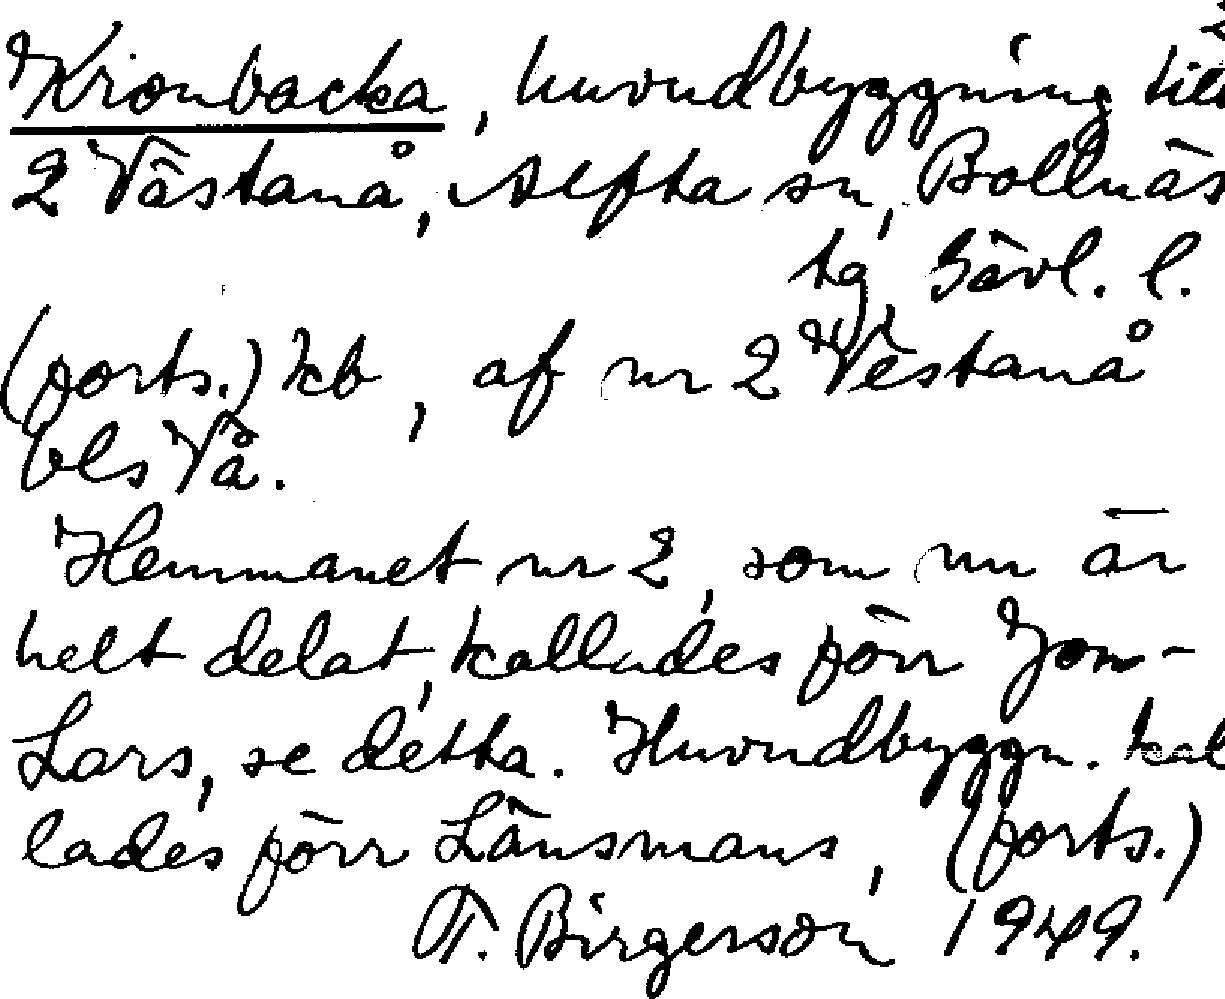 Kronbacka, huvudbyggning till
2 Västanå, Alfta sn, Bollnäs
tg, Gävl. l.
(forts.) kb, af nr 2 Vestanå
bls Vå.
Hemmanet nr 2, som nu är
helt delat, kallades förr Jon-
Lars, se detta. Huvudbyggn. kal
lades förr Länsmans, (forts.)
T. Birgerson 1949.